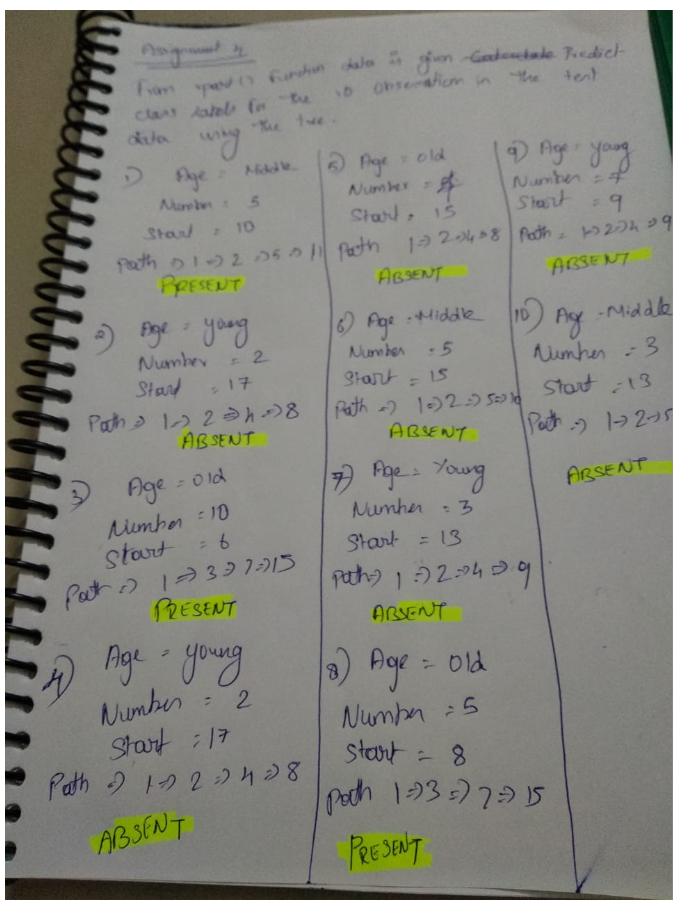 Assignment 4
From rpart() Function data is given Calculate Predict
class labels for the 10 observation in the test
data using the tree.
1) Age = Middle
Number = 5
Start = 10
Path => 1 => 2 => 5 => 11
PRESENT
2) Age = young
Number = 2
Start = 17
Path => 1 => 2 => 4 => 8
ABSENT
3) Age = old
Number = 10
Start = 6
Path => 1 => 3 => 7 => 15
PRESENT
4) Age = young
Number = 2
Start = 17
Path => 1 => 2 => 4 => 8
ABSENT
5) Age = old
Number =
Start = 15
Path 1 => 2 => 4 => 8
ABSENT
6) Age = Middle
Number = 5
Start = 15
Path => 1 => 2 => 5 => 10
ABSENT
7) Age = Young
Number = 3
Start = 13
Path => 1 => 2 => 4 => 9
ABSENT
8) Age = Old
Number = 5
Start = 8
Path 1 => 3 => 7 => 15
PRESENT
9) Age = young
Number = 7
Start = 9
Path = 1 => 2 => 4 => 9
ABSENT
10) Age - Middle
Number = 3
Start = 13
Path => 1 => 2 => 5
ABSENT